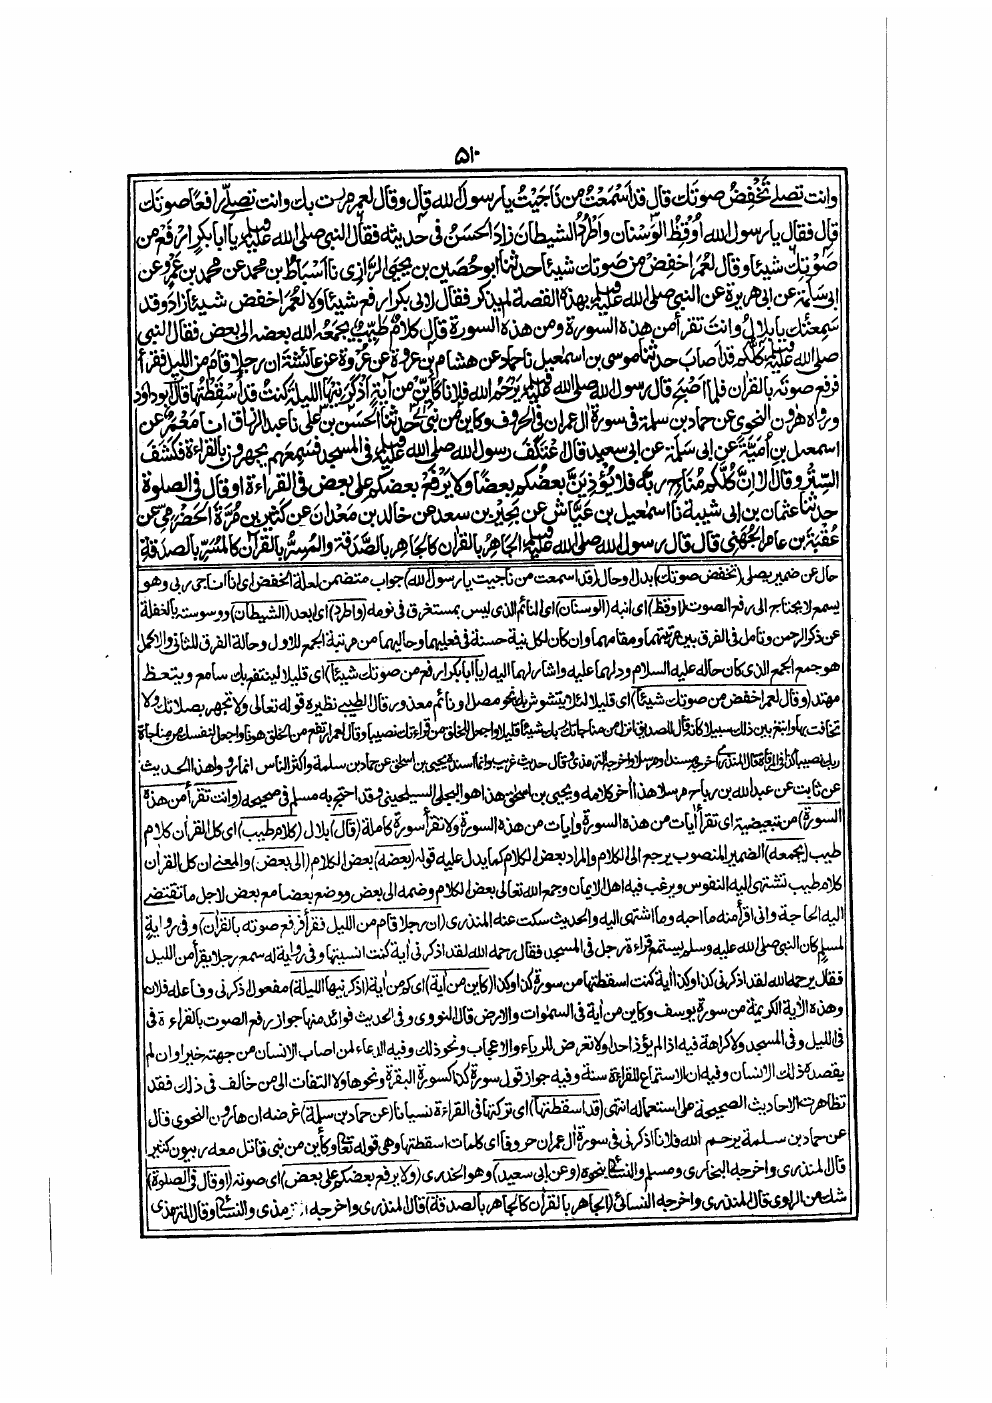 ٥١٠
وانت تصلے تَخْفِضُ صوتك قال قد اَسْمَعْتُ من نَاجَيْتُ يا رسول الله قال وقال لعمر مررت بك وانت تصلے رافعًا صوتك
قال فقال يا رسول الله اُوقِظُ الوَسْنَان واَطْرُدُ الشيطان زاد الحسنُ فى حديثه فقال النبى صلى الله عليه وسلم يا ابا بكر ارفع من
صَوْتِكَ شيئا وقال لعمر اخفِض من صَوتك شيئا حدثنا ابو حُصَين بن يحيى الرَّازِى نا اَسْبَاطُ بن محمد عن محمد بن عَمْرٍو عن
ابى سَلَمَةَ عن ابى هريرة عن النبى صلى الله عليه وسلم بهذه القصة لم يذكر فقال لابى بكر ارفع شيئا ولا لعمر اخفض شيئا زاد وقد
سَمِعتُك يا بلالُ وانتَ تقرأ من هذه السورة ومن هذه السورة قال كلامٌ طَيِّبٌ يجمعُه الله بعضه الى بعض فقال النبى
صلى الله عليه وسلم كلكم قد اَصَابَ حدثنا موسى بن اسمٰعيل نا حماد عن هشام بن عُروة عن عُرْوَةَ عن عائشة ان رجلا قام من الليل فقرأ
فرفع صوته بالقراٰن فلما اَصْبَحَ قال رسول الله صلى الله عليه وسلم يَرْحَمُ الله فلانا كَاَيِّنْ من اٰيةٍ اَذْكَرَنِيْها الليلةَ كنتُ قد اَسْقَطْتُها قال ابو داؤد
ورواه هٰرون النحوى عن حماد بن سلمة فى سورة اٰل عمران فى الحروف وكاين من نبى حدثنا الحسن بن على نا عبد الرزاق انا مَعْمَرٌ عن
اسمٰعيل بن اُمَيَّةَ عن ابى سَلَمَة عن ابى سعيد قال اعْتَكَفَ رسول الله صلى الله عليه وسلم فى المسجد فسَمِعَهم يجهرون بالقراءة فكَشَفَ
السِّتْرَ وقال اَلَا اِنَّ كُلَّكُم مُنَاجٍ ربَّه فلا يُؤْذِيَنَّ بعضُكم بعضًا ولا يرفعْ بعضُكم على بعض فى القراءة او قال فى الصلوة
حدثنا عثمان بن ابى شيبة نا اسمعيل بن عَيَّاش عن بَحِيْرِ بن سعد عن خالد بن مَعْدَانَ عن كثير بن مُرَّةَ الحَضْرَمِىِّ عن
عُقْبَةَ بن عامر الجُهَنِى قال قال رسول الله صلى الله عليه وسلم الجاهِرُ بالقراٰن كالجاهِرِ بالصَّدَقَةِ والمُسِرُّ بالقراٰن كالمُسِرِّ بالصدقة
حال عن ضمير يصلى (تخفض صوتك) بدل او حال (قد اسمعت من ناجيت يا رسول الله) جواب متضمن لعلة الخفض اى انا اناجى ربى وهو
يسمع لا يحتاج الى رفع الصوت (اوقظ) اى انبه (الوسنان) اى النائم الذى ليس بمستغرق فى نومه (واطرد) اى ابعد (الشيطان) ووسوسته بالغفلة
عن ذكر الرحمن وتامل فى الفرق بين مرتبتهما ومقامهما وان كان لكل نية حسنة فى فعليهما وحاليهما من مرتبة الجمع للاول وحالة الفرق للثانى والاكمل
هو جمع الجمع الذى كان حاله عليه السلام ودلهما عليه واشار لهما اليه (يا ابا بكر ارفع من صوتك شيئا) اى قليلا لينتفع بك سامع ويتعظ
مهتد (وقال لعمر اخفض من صوتك شيئا) اى قليلا لئلا يتشوش بك نحو مصل او نائم معذور قال الطيبى نظيره قوله تعالى ولا تجهر بصلاتك ولا
تخافت بها وابتغ بين ذلك سبيلا كانه قال للصديق انزل من مناجاتك ربك شيئا قليلا واجعل الخلق من قراءتك نصيبا وقال لعمر ارتفع من الخلق هونا واجعل لنفسك من مناجاة
ربك نصيبا كذا فى المرقاة قال المنذرى اخرجه مسندا ومرسلا واخرجه الترمذى وقال حديث غريب وانما اسنده يحيى بن اسحٰق عن حماد بن سلمة واكثر الناس انما رووا هذا الحديث
عن ثابت عن عبد الله بن رباح مرسلا هذا اٰخر كلامه ويحيى بن اسحٰق هذا هو البجلى السيلحينى وقد احتج به مسلم فى صحيحه (وانت تقرأ من هذه
السورة) من تبعيضية اى تقرأ اٰيات من هذه السورة واٰيات من هذه السورة ولا تقرأ سورة كاملة (قال) بلال (كلام طيب) اى كل القراٰن كلام
طيب (يجمعه) الضمير المنصوب يرجع الى الكلام والمراد بعض الكلام كما يدل عليه قوله (بعضه) بعض الكلام (الى بعض) والمعنى ان كل القراٰن
كلام طيب تشتهى اليه النفوس ويرغب فيه اهل الايمان وجمع الله تعالى بعض الكلام وضمه الى بعض ووضع بعضا مع بعض لاجل ما تقتضى
اليه الحاجة وانى اقرأ منه ما احبه وما اشتهى اليه والحديث سكت عنه المنذرى (ان رجلا قام من الليل فقرأ فرفع صوته بالقراٰن) وفى رواية
لمسلم كان النبى صلى الله عليه وسلم يستمع قراءة رجل فى المسجد فقال رحمه الله لقد اذكرنى اٰية كنت انسيتها وفى رواية له سمع رجلا يقرأ من الليل
فقال يرحمه الله لقد اذكرنى كذا وكذا اٰية كنت اسقطتها من سورة كذا وكذا (كاين من اٰية) اى كم من اٰية (اذكرنيها الليلة) مفعول ذكرنى وفاعله فلان
وهذه الاٰية الكريمة من سورة يوسف وكاين من اٰية فى السمٰوات والارض قال النووى وفى الحديث فوائد منها جواز رفع الصوت بالقراءة فى
فى الليل وفى المسجد ولا كراهة فيه اذا لم يؤذ احدا ولا تعرض للرياء والاعجاب ونحو ذلك وفيه الدعاء لمن اصاب الانسان من جهته خيرا وان لم
يقصده ذلك الانسان وفيه ان الاستماع للقراءة سنة وفيه جواز قول سورة كذا كسورة البقرة ونحوها ولا التفات الى من خالف فى ذلك فقد
تظاهرت الاحاديث الصحيحة على استعماله انتهى (قد اسقطتها) اى تركتها فى القراءة نسيانا (عن حماد بن سلمة) غرضه ان هارون النحوى قال
عن حماد بن سلمة يرحم الله فلانا اذكرنى فى سورة اٰل عمران حروفا اى كلمات اسقطتها وهى قوله تعالى وكاَين من نبى قاتل معه ربيون كثير
قال المنذرى واخرجه البخارى ومسلم والنسائى بنحوه (وعن ابى سعيد) وهو الخدرى (ولا يرفع بعضكم على بعض) اى صوته (او قال فى الصلوة)
شك من الراوى قال المنذرى واخرجه النسائى (الجاهر بالقراٰن كالجاهر بالصدقة) قال المنذرى واخرجه الترمذى والنسائى وقال الترمذى